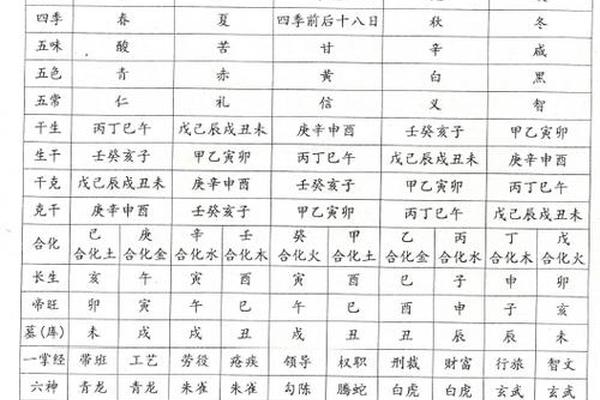 四季 春 夏 四季前后十八日 秋 冬
五味 酸 苦 甘 辛 咸
五色 青 赤 黄 白 黑
五常 仁 礼 信 义 智
干生 丙丁巳午 戊己辰戌丑未 庚辛申酉 壬癸亥子 甲乙寅卯
生干 壬癸亥子 甲乙寅卯 丙丁巳午 戊己辰戌丑未 庚辛申酉
干克 戊己辰戌丑未 庚辛申酉 壬癸亥子 甲乙寅卯 丙丁巳午
克干 庚辛申酉 壬癸亥子 甲乙寅卯 丙丁巳午 戊己辰戌丑未
己 庚 辛 壬 癸 甲 乙 丙 丁 戊
合化 合化土 合化金 合化水 合化木 合化火 合化土 合化金 合化水 合化木 合化火
长生 亥 午 寅 酉 寅 酉 巳 子 申 卯
帝旺 卯 寅 午 巳 午 巳 酉 申 子 亥
墓(库) 未 戌 戌 丑 戌 丑 丑 辰 辰 未
一掌经 带班 工艺 劳役 疮疾 领导 权职 刑裁 财富 行旅 智文
六神 青龙 青龙 朱雀 朱雀 勾陈 腾蛇 白虎 白虎 玄武 玄武